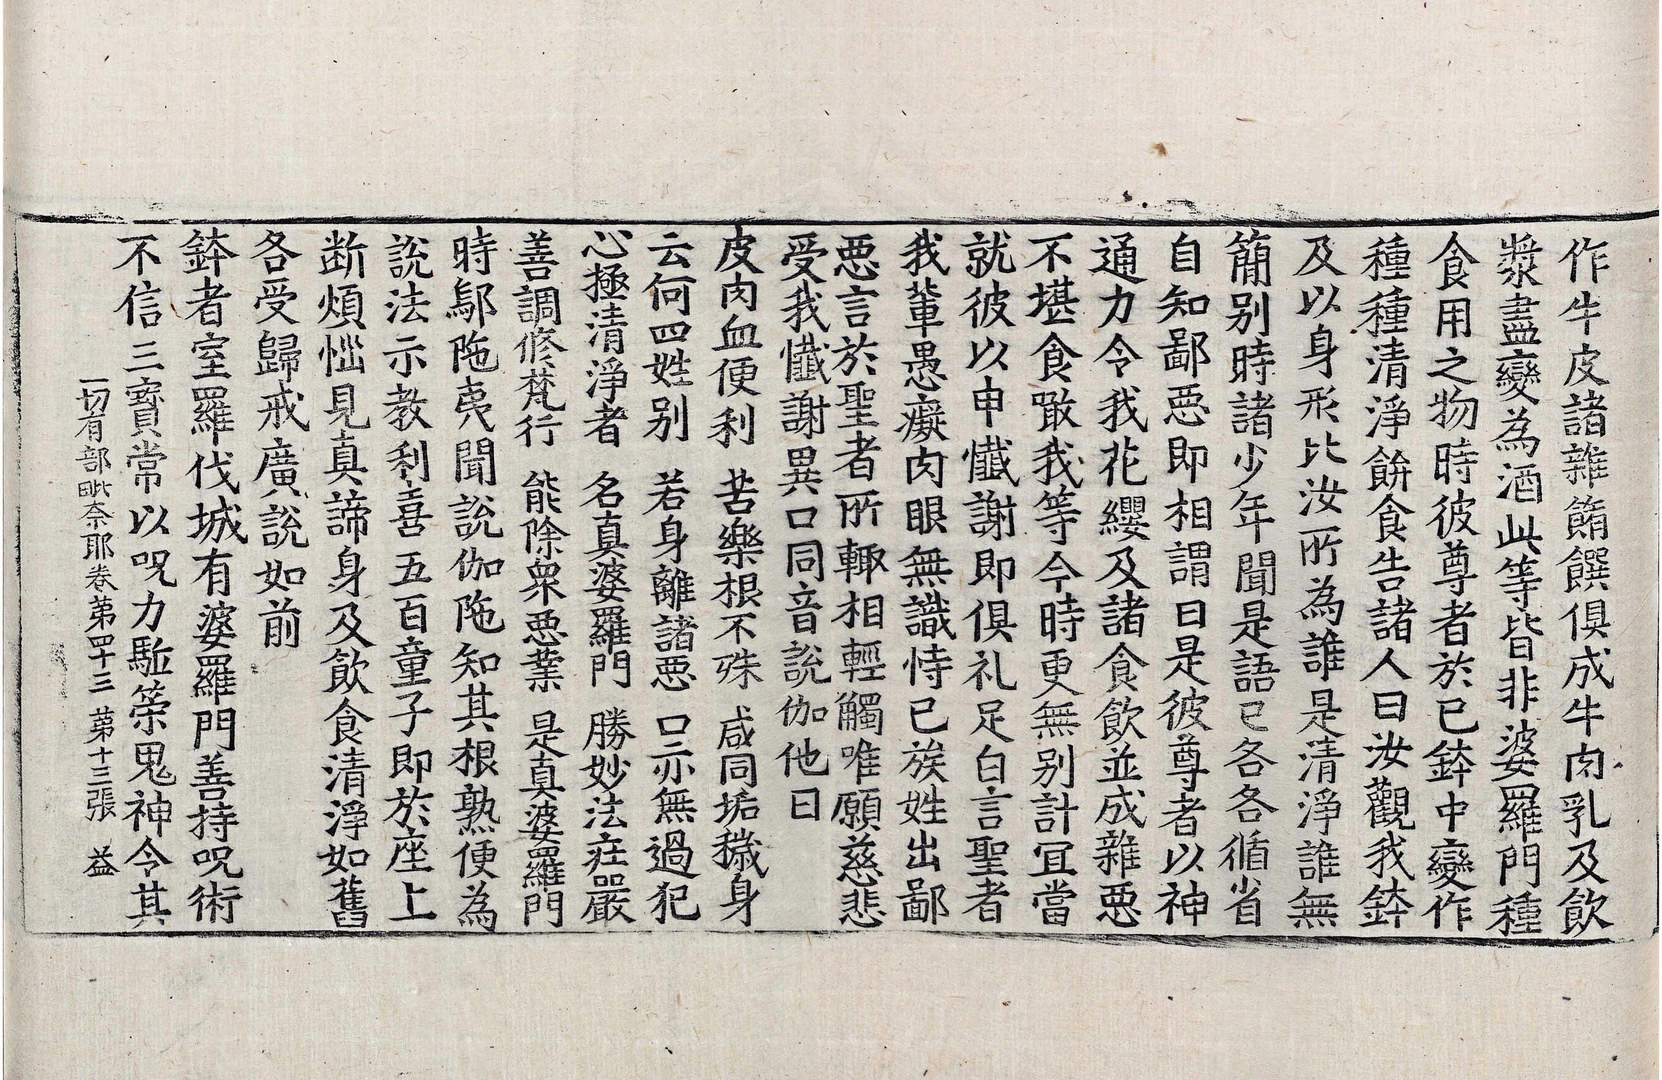 作牛皮諸雜餚饌俱成牛肉乳及飲
漿盡變為酒此等皆非婆羅門種
食用之物時彼尊者於已鉢中變作
種種清淨餅食告諸人曰汝觀我鉢
及以身形比汝所為誰是清淨誰無
簡别時諸少年聞是語已各各循省
自知鄙惡即相謂曰是彼尊者以神
通力令我花纓及諸食飲並成雜惡
不堪食噉我等今時更無別計冝當
就彼以申懺謝即俱礼足白言聖者
我輩愚癡肉眼無識恃已族姓出鄙
惡言於聖者所輙相輕觸唯願慈悲
受我懺謝異口同音說伽他曰
皮肉血便利　苦樂根不殊　咸同垢穢身
云何四姓别　若身離諸惡　口亦無過犯
心極清淨者　名真婆羅門　勝妙法莊嚴
善調修梵行　能除衆惡業　是真婆羅門
時鄔陁夷聞說伽陁知其根熟便為
說法示教利喜五百童子即於座上
断煩惱見真諦身及飲食清淨如舊
各受歸戒廣說如前
鉢者室羅伐城有婆羅門善持呪術
不信三寶常以呪力駈策鬼神令其
一切有部毗奈耶卷第四十三　第十三張　益